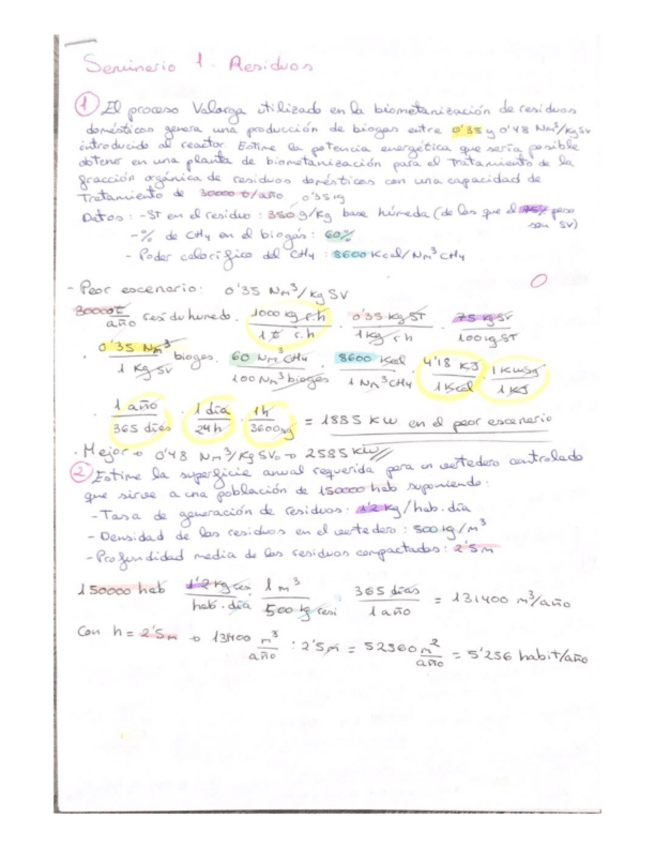 Seminario 1. Residuos
① El proceso Valorga utilizado en la biometanización de residuos
domésticos genera una producción de biogas entre 0'38 y 0'48 Nm³/kg SV
introducido al reactor. Estime la potencia energética que sería posible
obtener en una planta de biometanización para el tratamiento de la
fracción orgánica de residuos domésticos con una capacidad de
tratamiento de 30000 t/año 0'35 kg
Datos: - ST en el residuo: 350 g/kg base húmeda (de los que el 75% peso
son SV)
- % de CH4 en el biogás: 60%
- Poder calorífico del CH4: 8600 Kcal/Nm³ CH4
- Peor escenario: 0'35 Nm³/kg SV
30000 t/año residuo humedo · 1000 kg r.h/1 t r.h · 0'35 kg ST/1 kg r h · 75 kg SV/100 kg ST
· 0'35 Nm³/1 kg SV biogas · 60 Nm³ CH4/100 Nm³ biogás · 8600 Kcal/1 Nm³ CH4 · 4'18 KJ/1 Kcal · 1 KW sg/1 KJ
· 1 año/365 días · 1 día/24h · 1h/3600 sg = 1885 KW en el peor escenario
· Mejor → 0'48 Nm³/Kg SV → 2585 KW
② Estime la superficie anual requerida para un vertedero controlado
que sirve a una población de 150000 hab suponiendo:
- Tasa de generación de residuos: 1'2 kg/hab·día
- Densidad de los residuos en el vertedero: 500 kg/m³
- Profundidad media de los residuos compactados: 2'5 m
150000 hab · 1'2 kg res/hab·día · 1 m³/500 kg resi · 365 días/1 año = 131400 m³/año
Con h = 2'5 m → 13400 m³/año : 2'5 m = 52560 m²/año = 5'256 habit/año